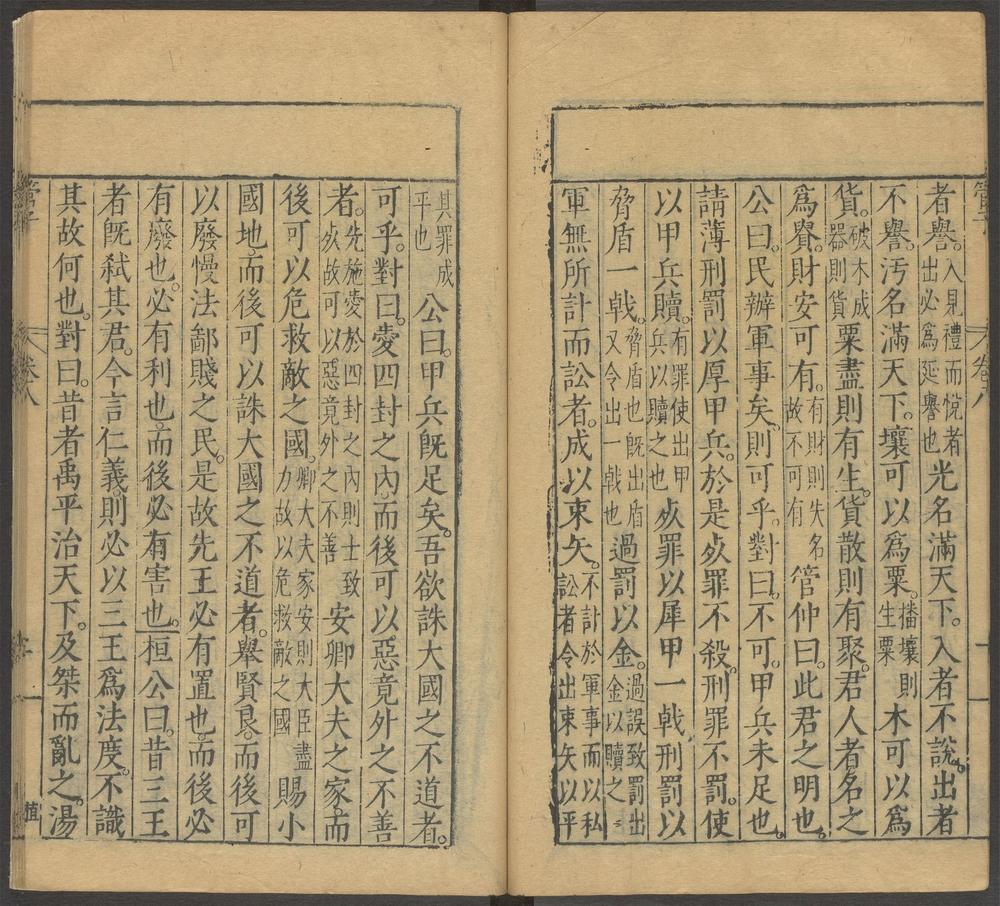 管子
卷八
十一
者譽。入見禮而悅者出必爲延譽也光名滿天下。入者不說。出者
不譽。汚名滿天下。壤可以爲粟。播壤則生粟木可以爲
貨。破木成器則貨粟盡則有生。貨散則有聚。君人者名之
爲貴。財安可有。有財則失名故不可有管仲曰。此君之明也。
公曰。民辦軍事矣。則可乎。對曰。不可。甲兵未足也。
請薄刑罰以厚甲兵。於是死罪不殺。刑罪不罰。使
以甲兵贖。有罪使出甲兵以贖之也死罪以犀甲一戟刑罰以
脅盾一戟。脅盾也旣出盾又令出一戟也過罰以金。過誤致罰出金以贖之
軍無所計而訟者。成以束矢。不計於軍事而以私訟者令出束矢以平
其罪成平也公曰。甲兵旣足矣。吾欲誅大國之不道者。
可乎。對曰。愛四封之內。而後可以惡竟外之不善
者。先施愛於四封之內則士致死故可以惡竟外之不善安卿大夫之家。而
後可以危救敵之國。卿大夫家安則大臣盡力故以危救敵之國賜小
國地。而後可以誅大國之不道者。舉賢良。而後可
以廢慢法鄙賤之民。是故先王必有置也。而後必
有廢也。必有利也。而後必有害也。桓公曰。昔三王
者旣弒其君。今言仁義。則必以三王爲法度。不識
其故何也。對曰。昔者禹平治天下。及桀而亂之。湯
管子
卷八